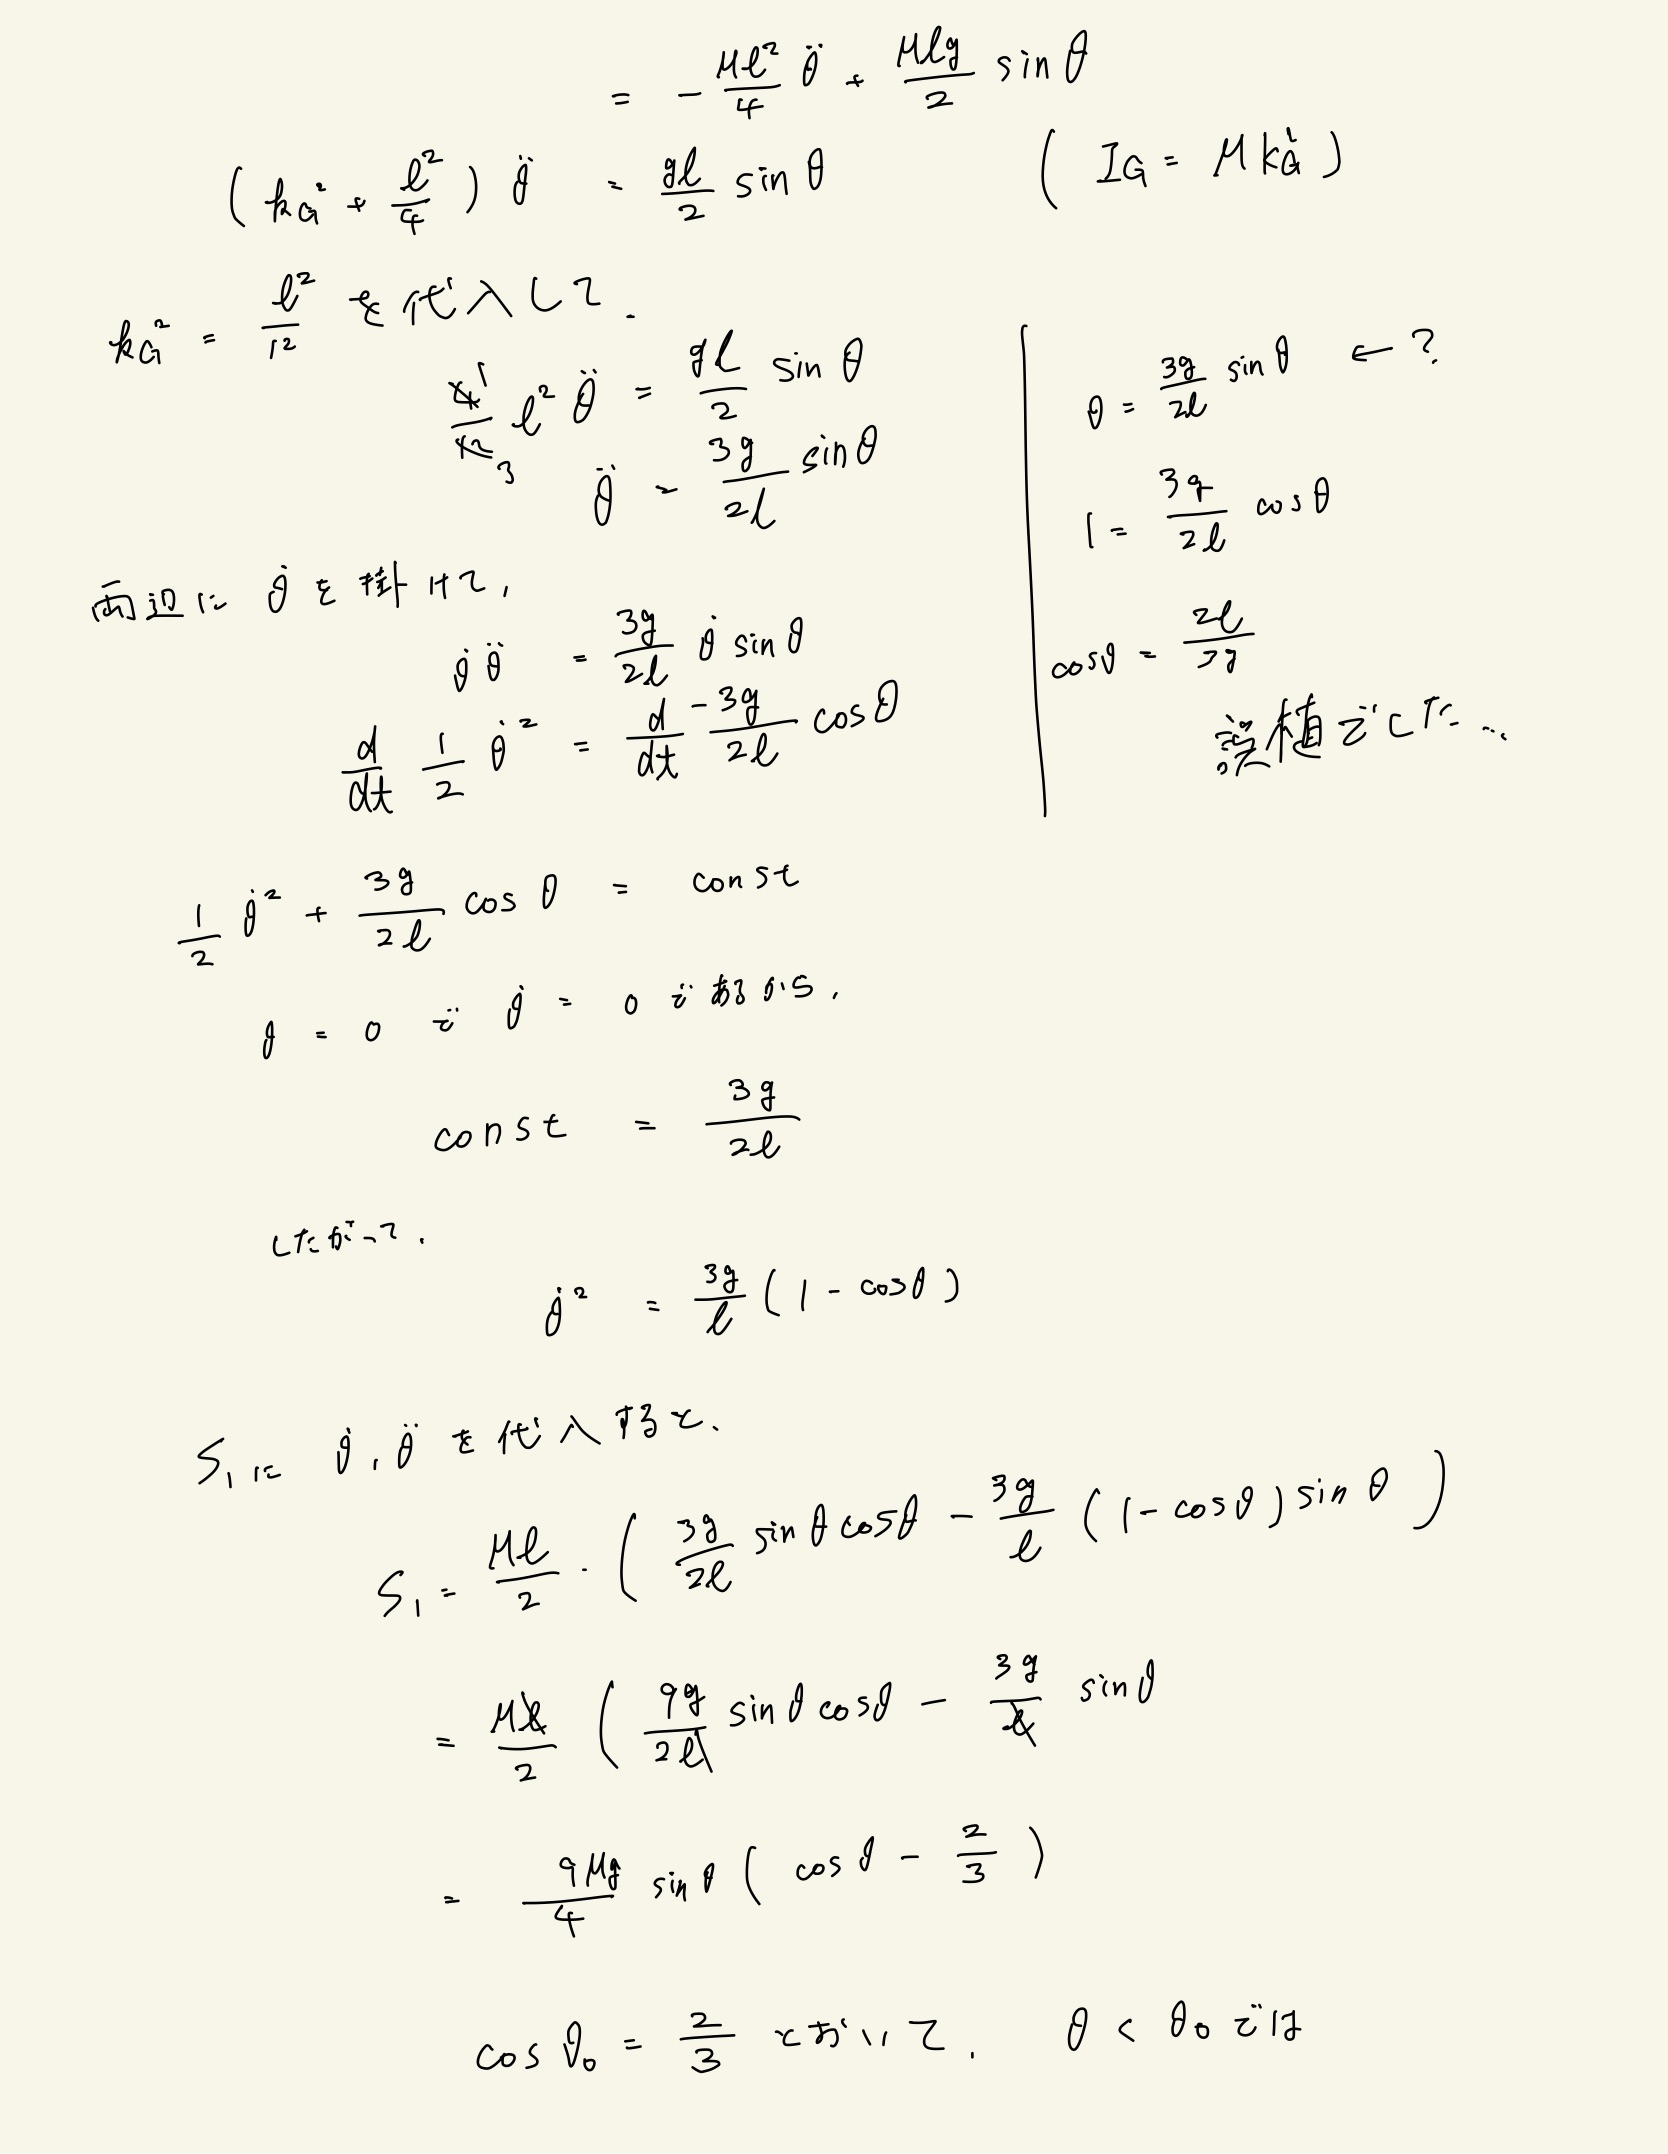 = - Ml²/4 θ̈ + Mlg/2 sin θ
(k_G² + l²/4) θ̈ = gl/2 sin θ (I_G = M k_G²)
k_G² = l²/12 を代入して.
4̸1/1̸2̸3 l² θ̈ = gl/2 sin θ
θ̈ = 3g/2l sin θ
両辺に θ̇ を掛けて,
θ̇ θ̈ = 3g/2l θ̇ sin θ
d/dt 1/2 θ̇² = d/dt -3g/2l cos θ
θ = 3g/2l sin θ ← ?
1 = 3g/2l cos θ
cosθ = 2l/3g
誤植でした...
1/2 θ̇² + 3g/2l cos θ = const
θ = 0 で θ̇ = 0 であるから,
const = 3g/2l
したがって.
θ̇² = 3g/l (1 - cosθ)
S₁に θ̇, θ̈ を代入すると.
S₁ = Ml/2 · (3g/2l sin θ cosθ - 3g/l (1 - cosθ) sin θ)
= Ml̸/2 (9g/2l̸ sin θ cosθ - 3g/l̸ sinθ
= 9Mg/4 sin θ (cos θ - 2/3)
cos θ₀ = 2/3 とおいて, θ < θ₀ では